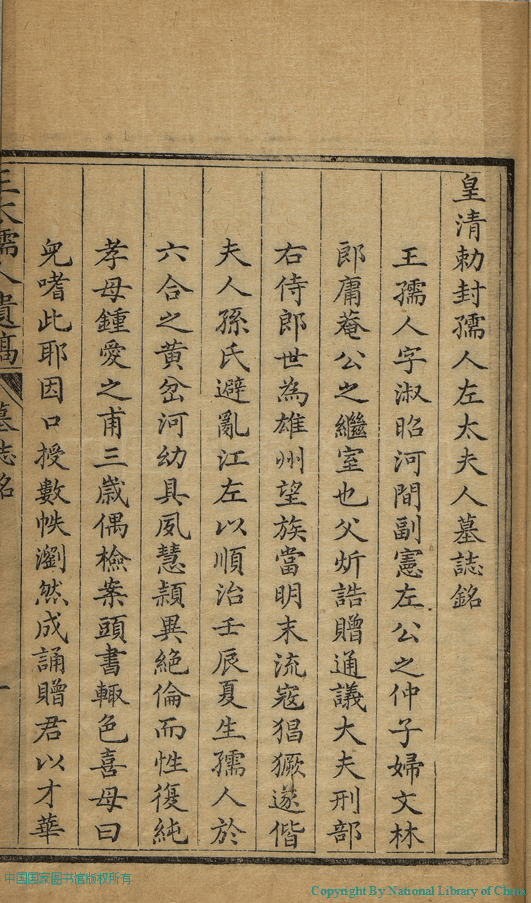 皇清勅封孺人左太夫人墓誌銘
王孺人字淑昭河間副憲左公之仲子婦文林
郎庸菴公之繼室也父炘誥贈通議大夫刑部
右侍郎世為雄州望族當明末流寇猖獗遂偕
夫人孫氏避亂江左以順治壬辰夏生孺人於
六合之黄岔河幼具夙慧穎異絶倫而性復純
孝母鍾愛之甫三歲偶檢案頭書輙色喜母曰
皃嗜此耶因口授數帙瀏然成誦贈君以才華
王太孺人遺稿
墓志銘
一
中国国家图书馆版权所有
Copyright By National Library of China